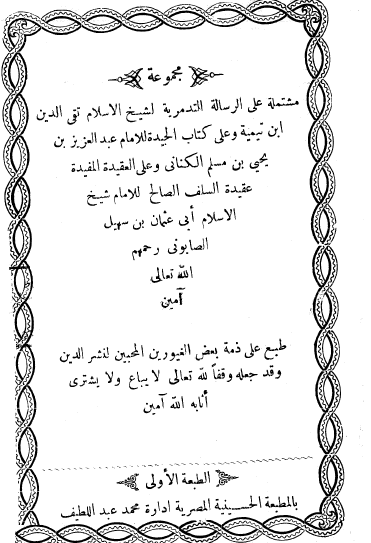 مجموعة
مشتملة على الرسالة التدمرية لشيخ الاسلام تقى الدين
ابن تيمية وعلى كتاب الحيدة للامام عبد العزيز بن
يحيى بن مسلم الكنانى وعلى العقيدة المفيدة
عقيدة السلف الصالح للامام شيخ
الاسلام أبى عثمان بن سهيل
الصابونى رحمهم
الله تعالى
آمين
طبع على ذمة بعض الغيورين المحبين لنشر الدين
وقد جعله وقفاً لله تعالى لا يباع ولا يشترى
أثابه الله آمين
الطبعة الأولى
بالمطبعة الحسينية المصرية ادارة محمد عبد اللطيف